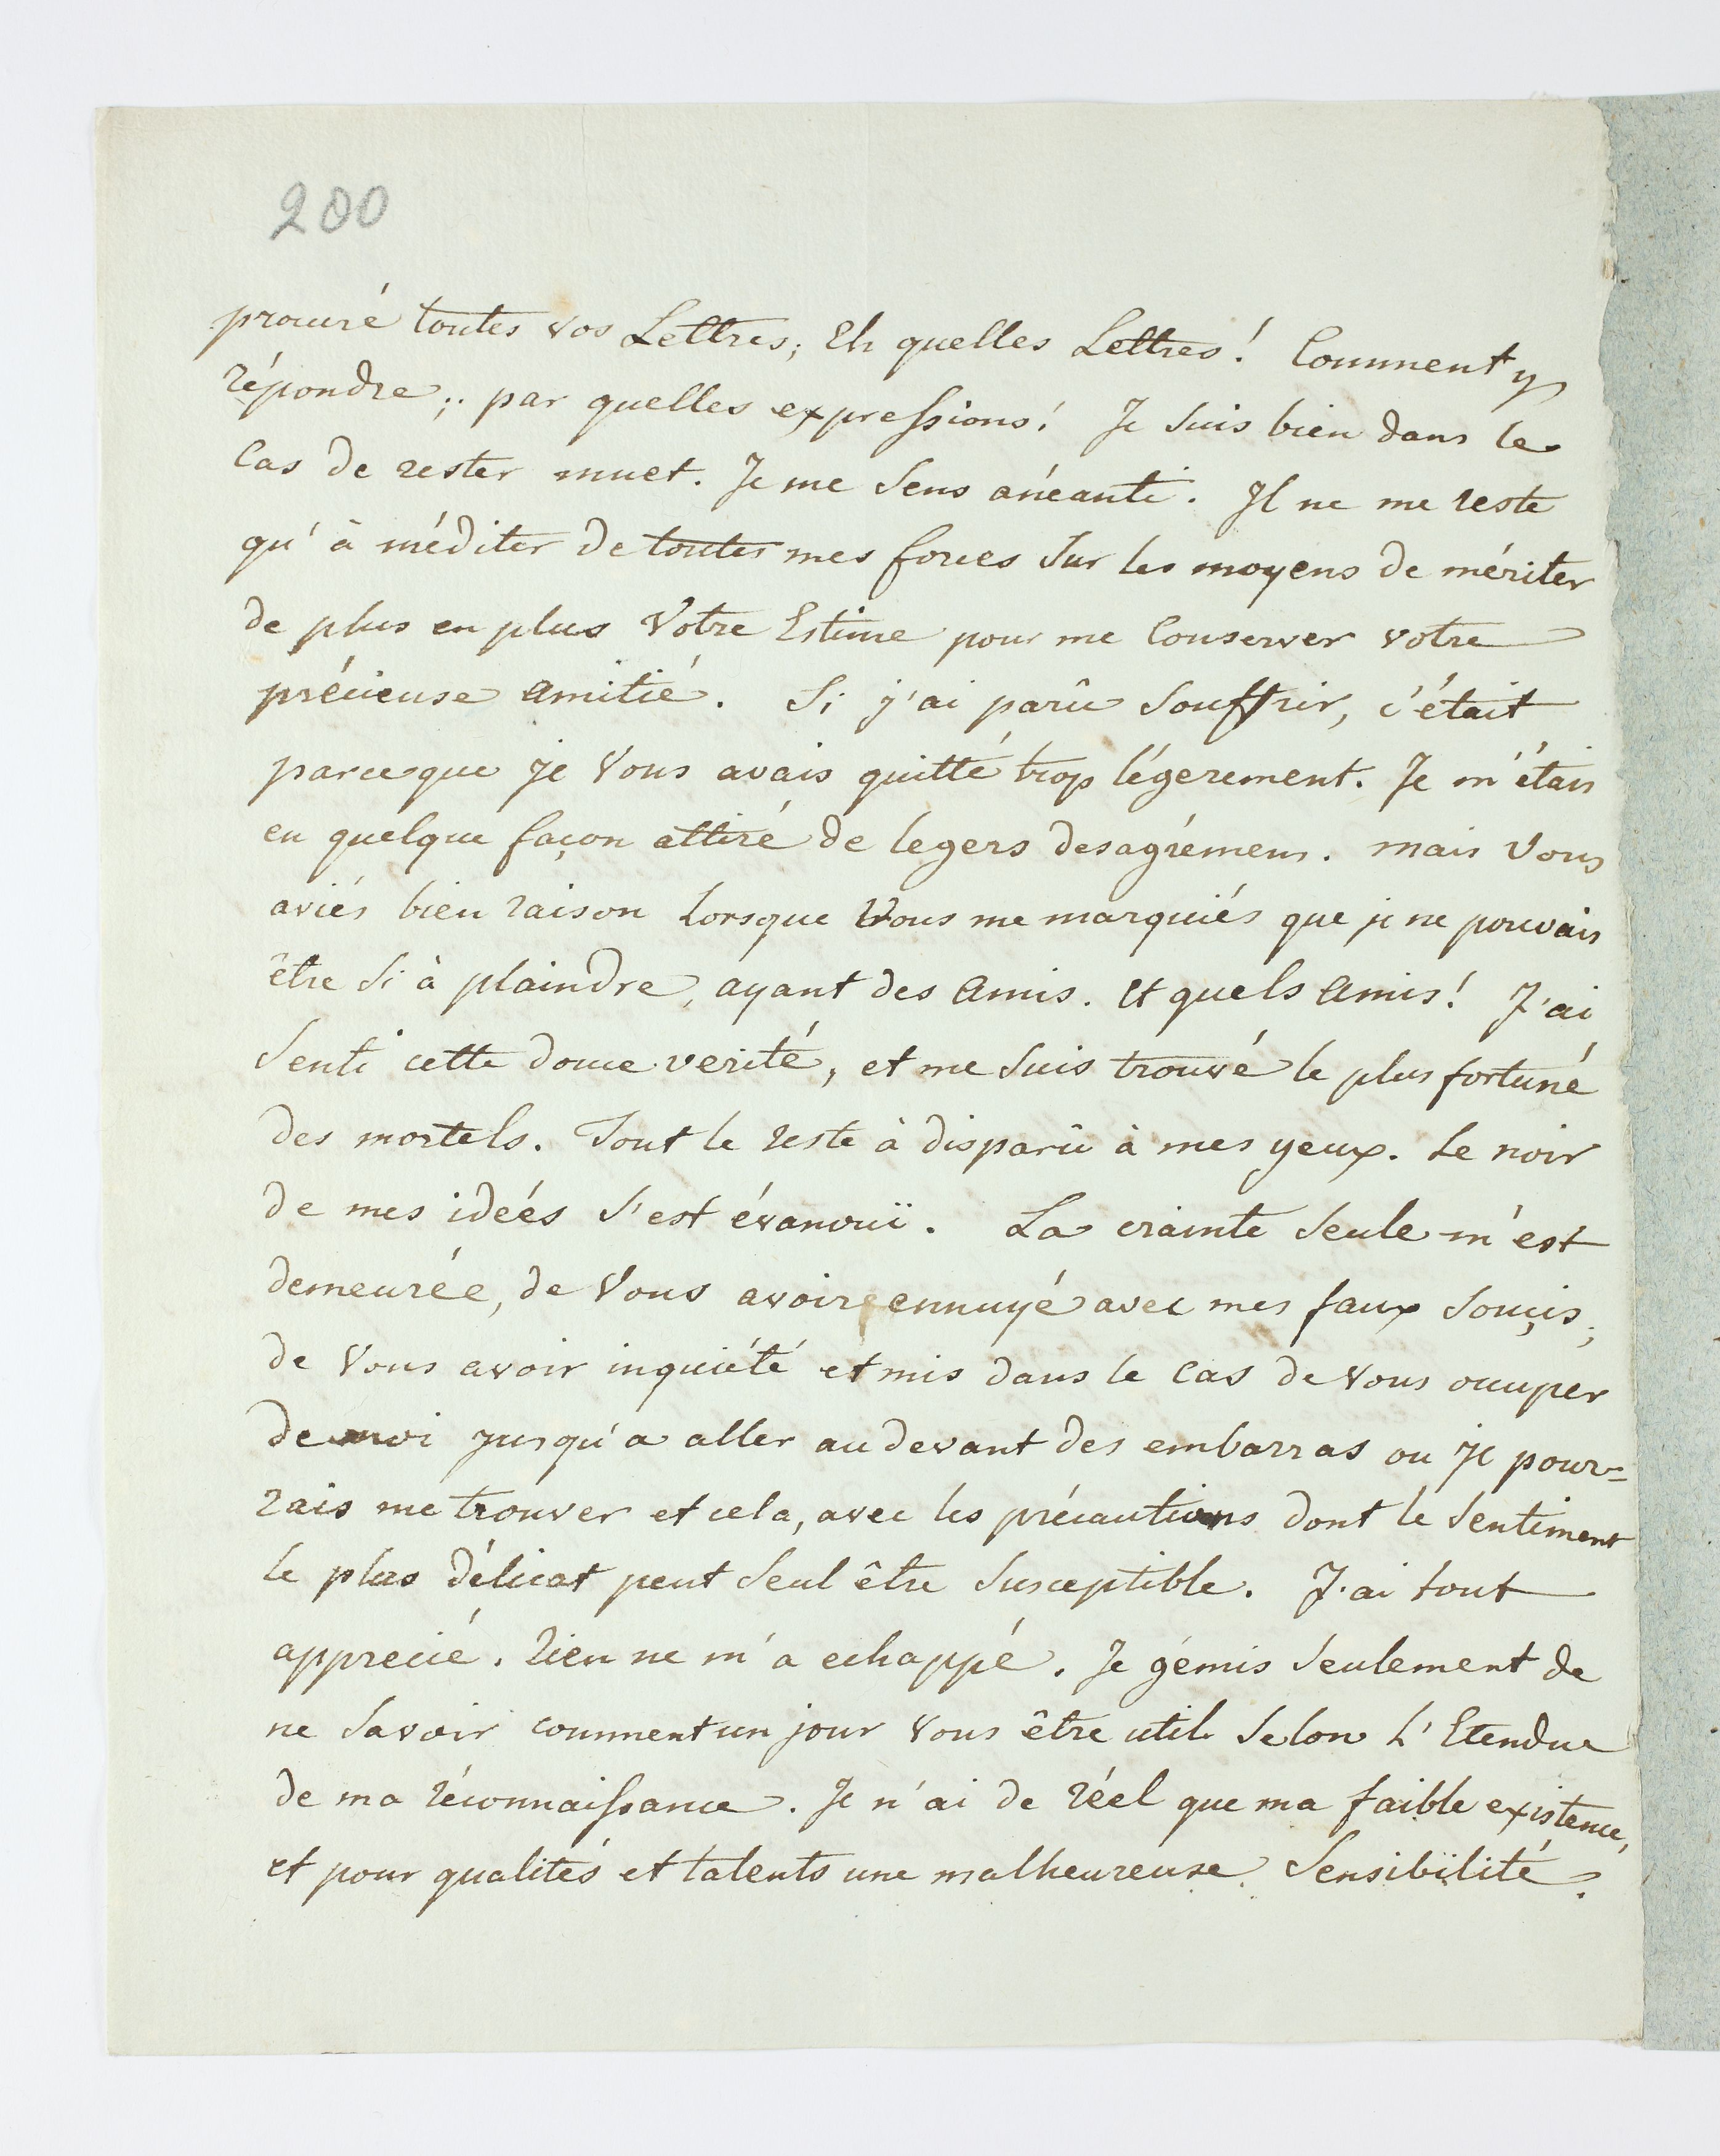 200
procuré toutes vos Lettres; Eh quelles Lettres! Comment y
répondre; par quelles expressions! Je suis bien dans le
Cas de rester muet. Je me sens anéanti. Il ne me reste
qu'à méditer de toutes mes forces sur les moyens de mériter
de plus en plus Votre Estime pour me Conserver votre
précieuse amitié. Si j'ai parû souffrir, c'était
parceque je Vous avais quitté trop légerement. Je m'étais
en quelque façon attiré de legers desagrémens. mais Vous
aviés bien raison Lorsque Vous me marquiés que je ne pouvais
être si à plaindre, ayant des Amis. Et quels Amis! J'ai
senti cette douce verité, et me suis trouvé le plus fortuné
des mortels. Tout le reste à disparû à mes yeux. Le noir
de mes ideés s'est évanouï. La crainte seule m'est
demeurée, de Vous avoir ennuyé avec mes faux souçis,
de Vous avoir inquiété et mis dans le Cas de vous occuper
de moi jusqu'a aller au devant des embarras ou je pour=
rais me trouver et cela, avec les précautions dont le sentiment
le plus délicat peut seul être susceptible. J'ai tout
apprecié. Rien ne m'a echappé. Je gémis seulement de
ne savoir comment un jour vous être utile selon L'Etendue
de ma réconnaissance. Je n'ai de réel que ma faible existence,
et pour qualités et talents une malheureuse Sensibilité.